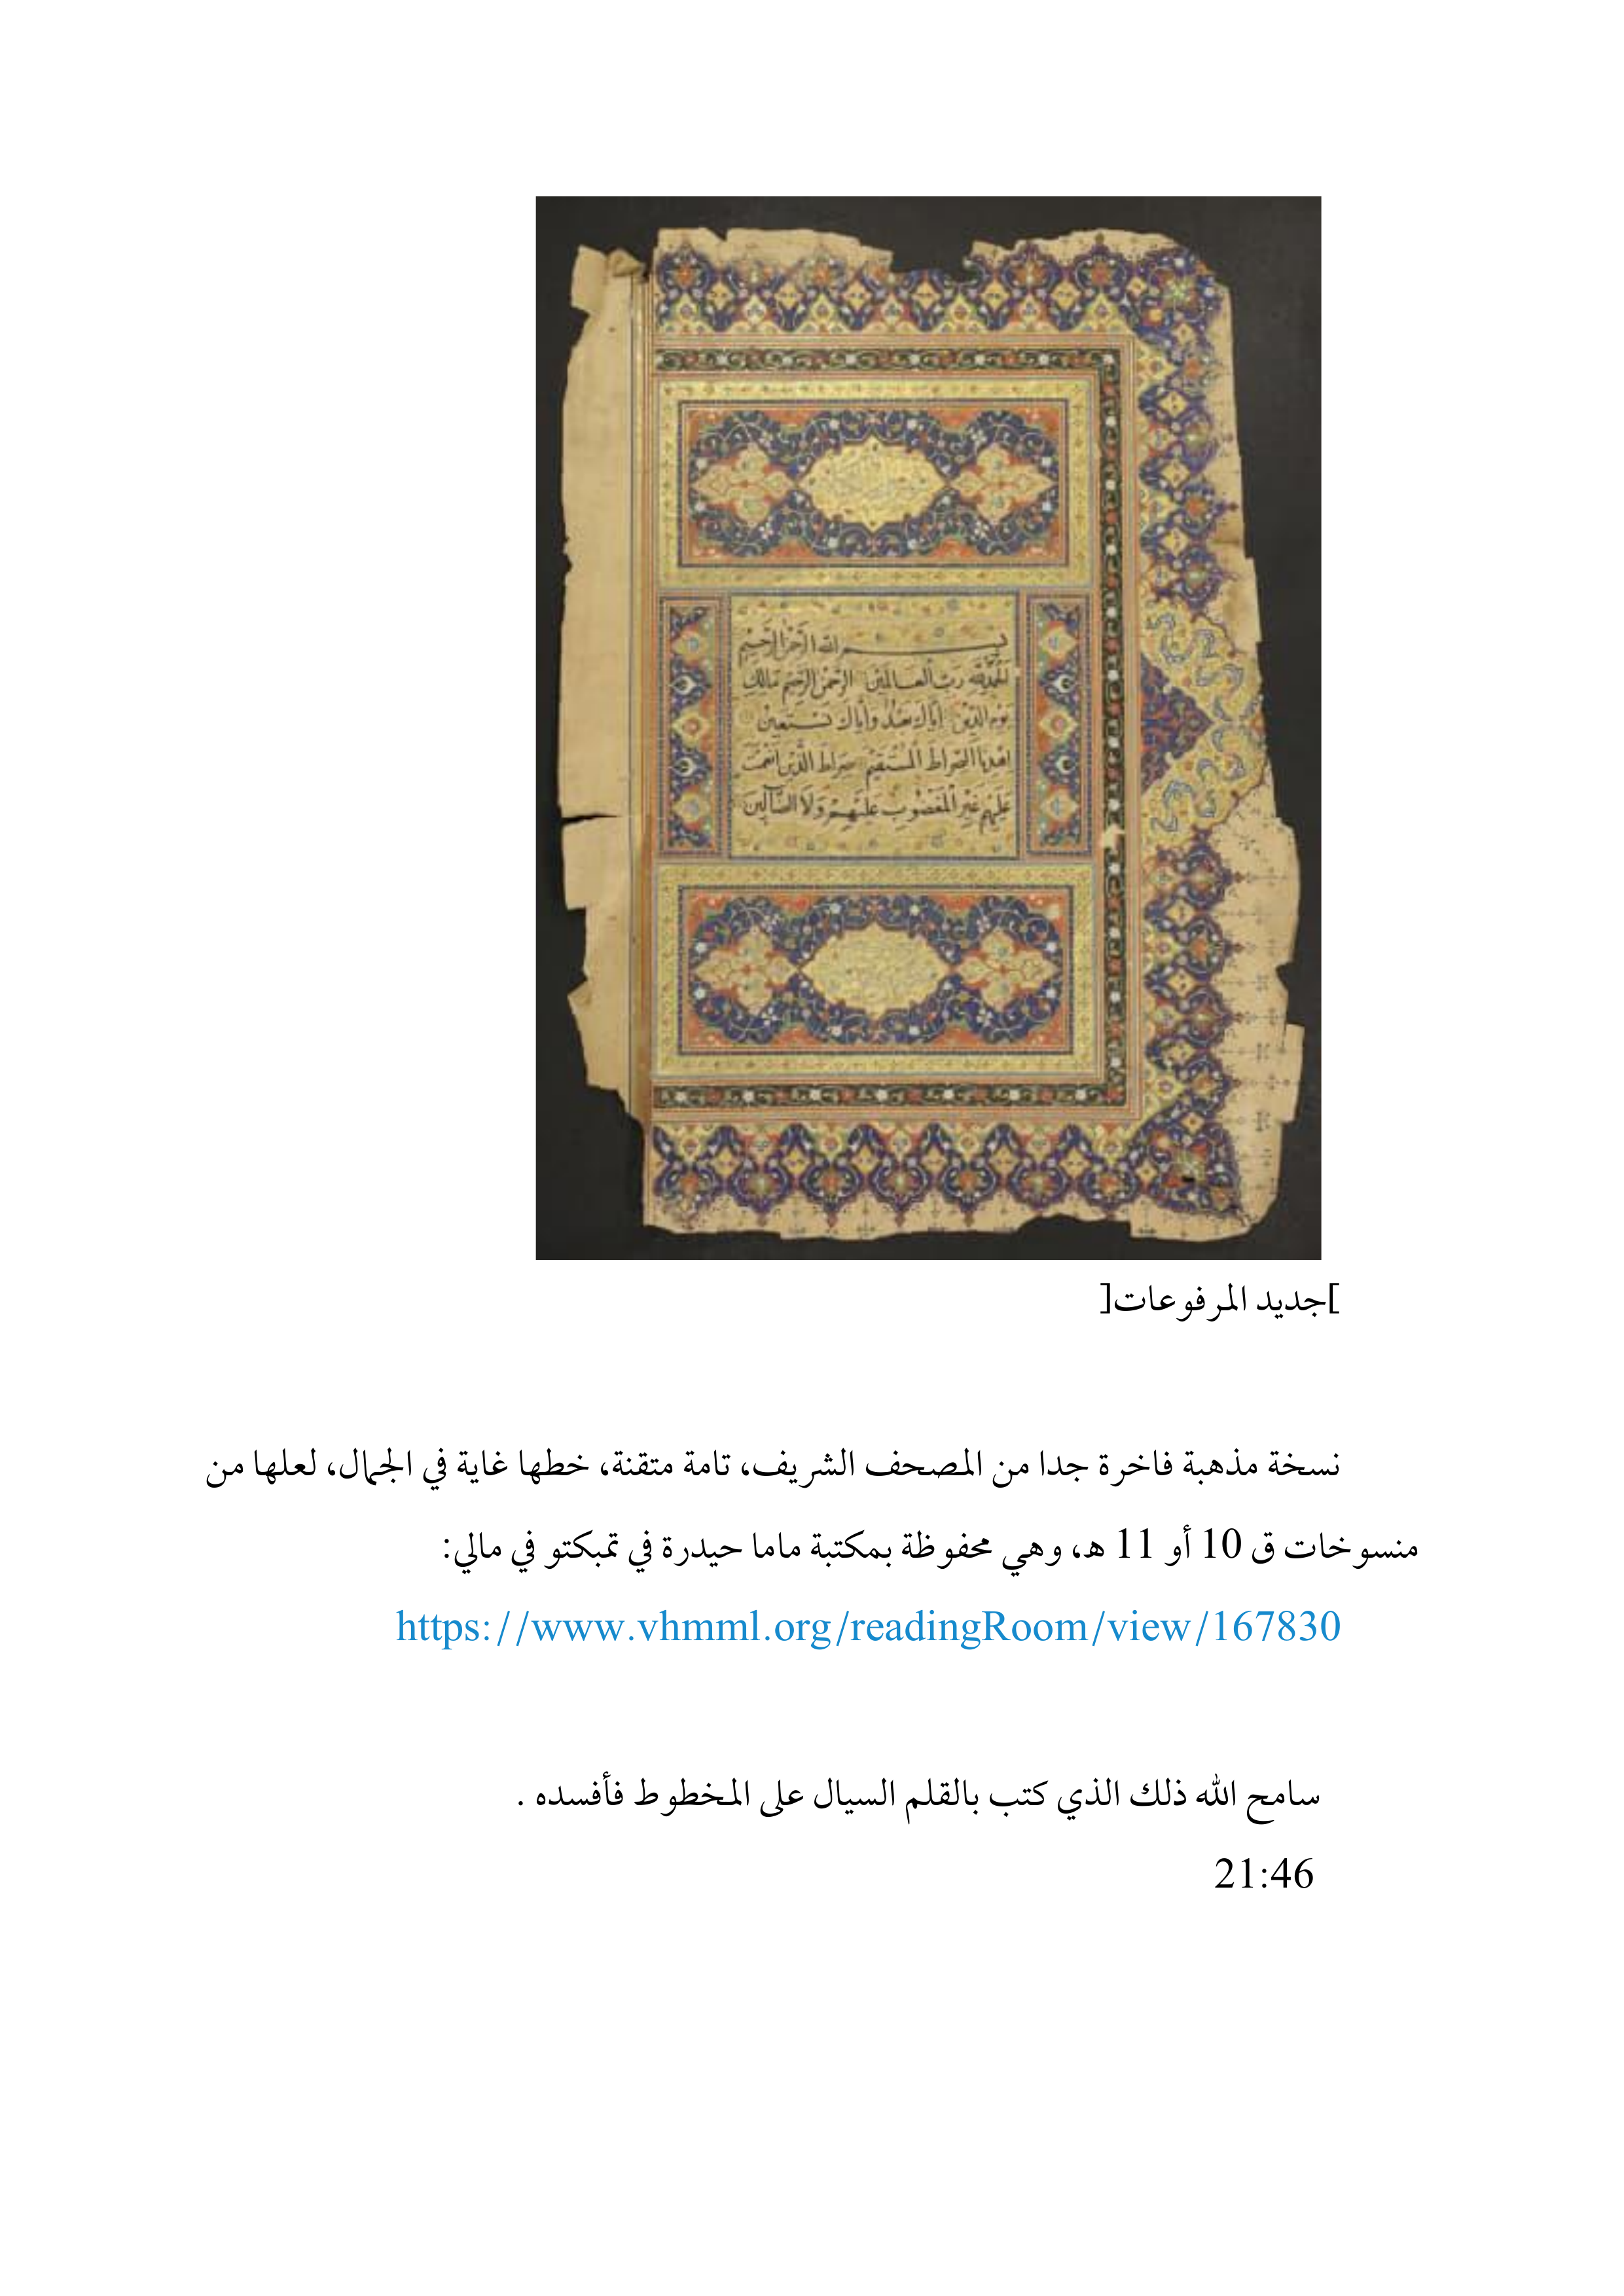 بسم الله الرحمن الرحيم
الحمد لله رب العالمين الرحمن الرحيم مالك
يوم الدين إياك نعبد وإياك نستعين
اهدنا الصراط المستقيم صراط الذين انعمت
عليهم غير المغضوب عليهم ولا الضالين
]جديد المرفوعات[
نسخة مذهبة فاخرة جدا من المصحف الشريف، تامة متقنة، خطها غاية في الجمال، لعلها من
منسوخات ق 10 أو 11 هـ، وهي محفوظة بمكتبة ماما حيدرة في تمبكتو في مالي:
https://www.vhmml.org/readingRoom/view/167830
سامح الله ذلك الذي كتب بالقلم السيال على المخطوط فأفسده .
21:46